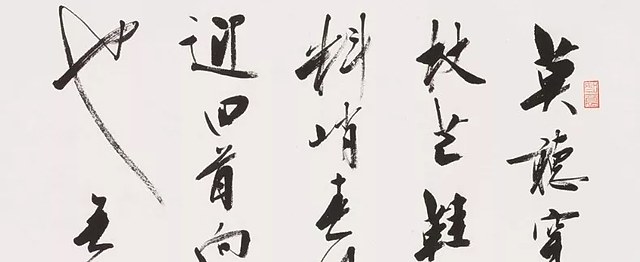 莫聽穿
杖芒鞋
料峭春
迎回首向
也无